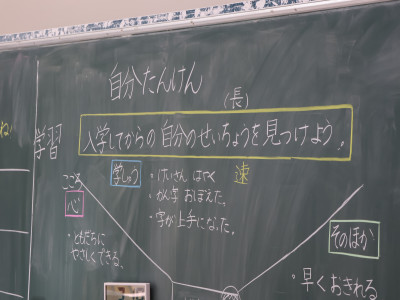 自分たんけん
(長)
入学してからの自分のせいちょうを見つけよう。
学習
学しゅう
・けいさん はやく
速
・かん字 おぼえた。
・字が上手になった。
こころ
心
・ともだちに
やさしくできる。
そのほか
・早くおきれる